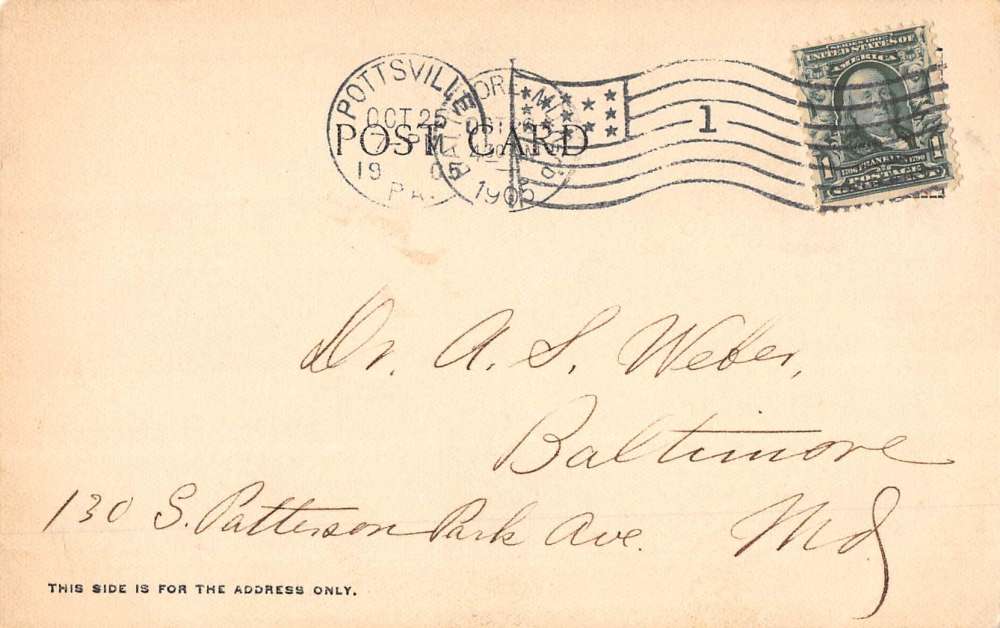 POTTSVILLE
OCT 25
7-PM
19 05
PA.
BALTIMORE, MD.
OCT 26
1905
1
SERIES 1902
UNITED STATES OF
AMERICA
1706 FRANKLIN 1790
1 POSTAGE 1
ONE CENT
POST CARD
Dr. A. S. Weber,
Baltimore
130 S. Patterson Park Ave. Md
THIS SIDE IS FOR THE ADDRESS ONLY.